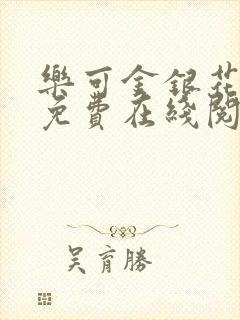 樂可金銀花
免費在綫閱
吳育勝